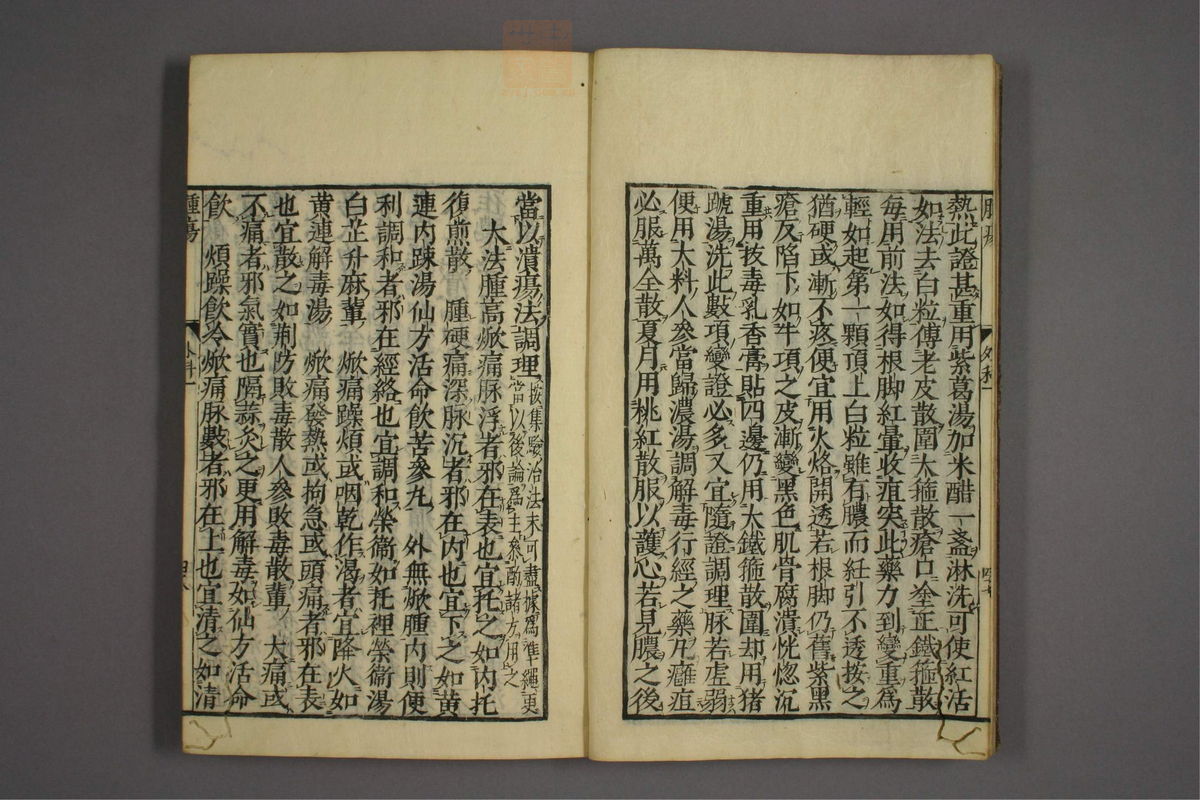 熱此證甚重用紫葛湯加米醋一盞淋洗可使紅活
如法去白粒傅老皮散圍大箍散瘡口金正鐵箍散
每用前法如得根脚紅暈收疽突此藥力到變重爲
輕如起第一顆頂上白粒雖有膿而紝引不透按之
猶硬或漸不疼便宜用火烙開透若根脚仍舊紫黑
瘡反陷下如牛項之皮漸變黑色肌骨腐潰恍惚沉
重用拔毒乳香膏貼四邊仍用大鐵箍散圍却用猪
蹄湯洗此數項變證必多又宜隨證調理脉若虛弱
便用大料人參當歸濃湯調解毒行經之藥凡癰疽
必服萬全散夏月用桃紅散服以護心若見膿之後
當以潰瘍法調理
按集驗治法未可盡據爲準繩更
當以後論爲主參酌諸方用之
大法腫高焮痛脉浮者邪在表也宜托之如内托
復煎散 腫硬痛深脉沉者邪在内也宜下之如黄
連内踈湯仙方活命飲苦參丸 外無焮腫内則便
利調和者邪在經絡也宜調和榮衛如托裡榮衛湯
白芷升麻輩 焮痛躁煩或咽乾作渇者宜降火如
黄連解毒湯 焮痛發熱或拘急或頭痛者邪在表
也宜散之如荆防敗毒散人參敗毒散輩 大痛或
不痛者邪氣實也隔蒜灸之更用解毒如仙方活命
飲 煩躁飲冷焮痛脉數者邪在上也宜清之如清
腫瘍